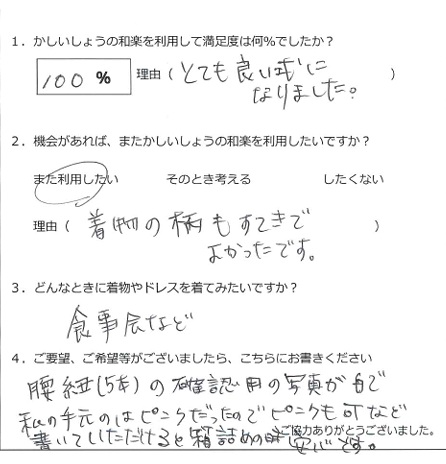 1．かしいしょうの和楽を利用して満足度は何%でしたか？
100 %
理由（とても良い式に
なりました。）
2．機会があれば、またかしいしょうの和楽を利用したいですか？
また利用したい そのとき考える したくない
理由（着物の柄もすてきで
よかったです。）
3．どんなときに着物やドレスを着てみたいですか？
食事会など
4．ご要望、ご希望等がございましたら、こちらにお書きください
腰紐(5本)の確認用の写真が白で
私の手元のはピンクだったのでピンクも可など
書いていただけると箱詰めの時安心です。
ご協力ありがとうございました。